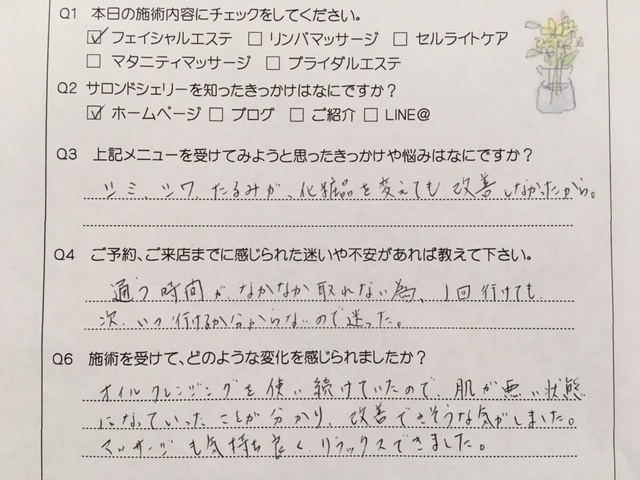 Q1 本日の施術内容にチェックをしてください。
☑ フェイシャルエステ □ リンパマッサージ □ セルライトケア
□ マタニティマッサージ □ ブライダルエステ
Q2 サロンドシェリーを知ったきっかけはなにですか？
☑ ホームページ □ ブログ □ ご紹介 □ LINE@
Q3 上記メニューを受けてみようと思ったきっかけや悩みはなにですか？
シミ、シワ、たるみが、化粧品を変えても改善しなかったから。
Q4 ご予約、ご来店までに感じられた迷いや不安があれば教えて下さい。
通う時間が、なかなか取れない為、1回行けても、
次、いつ行けるか分からないので迷った。
Q6 施術を受けて、どのような変化を感じられましたか？
オイルクレンジングを使い続けていたので、肌が悪い状態
になっていったことが分かり、改善できそうな気がしました。
マッサージも気持ち良く、リラックスできました。